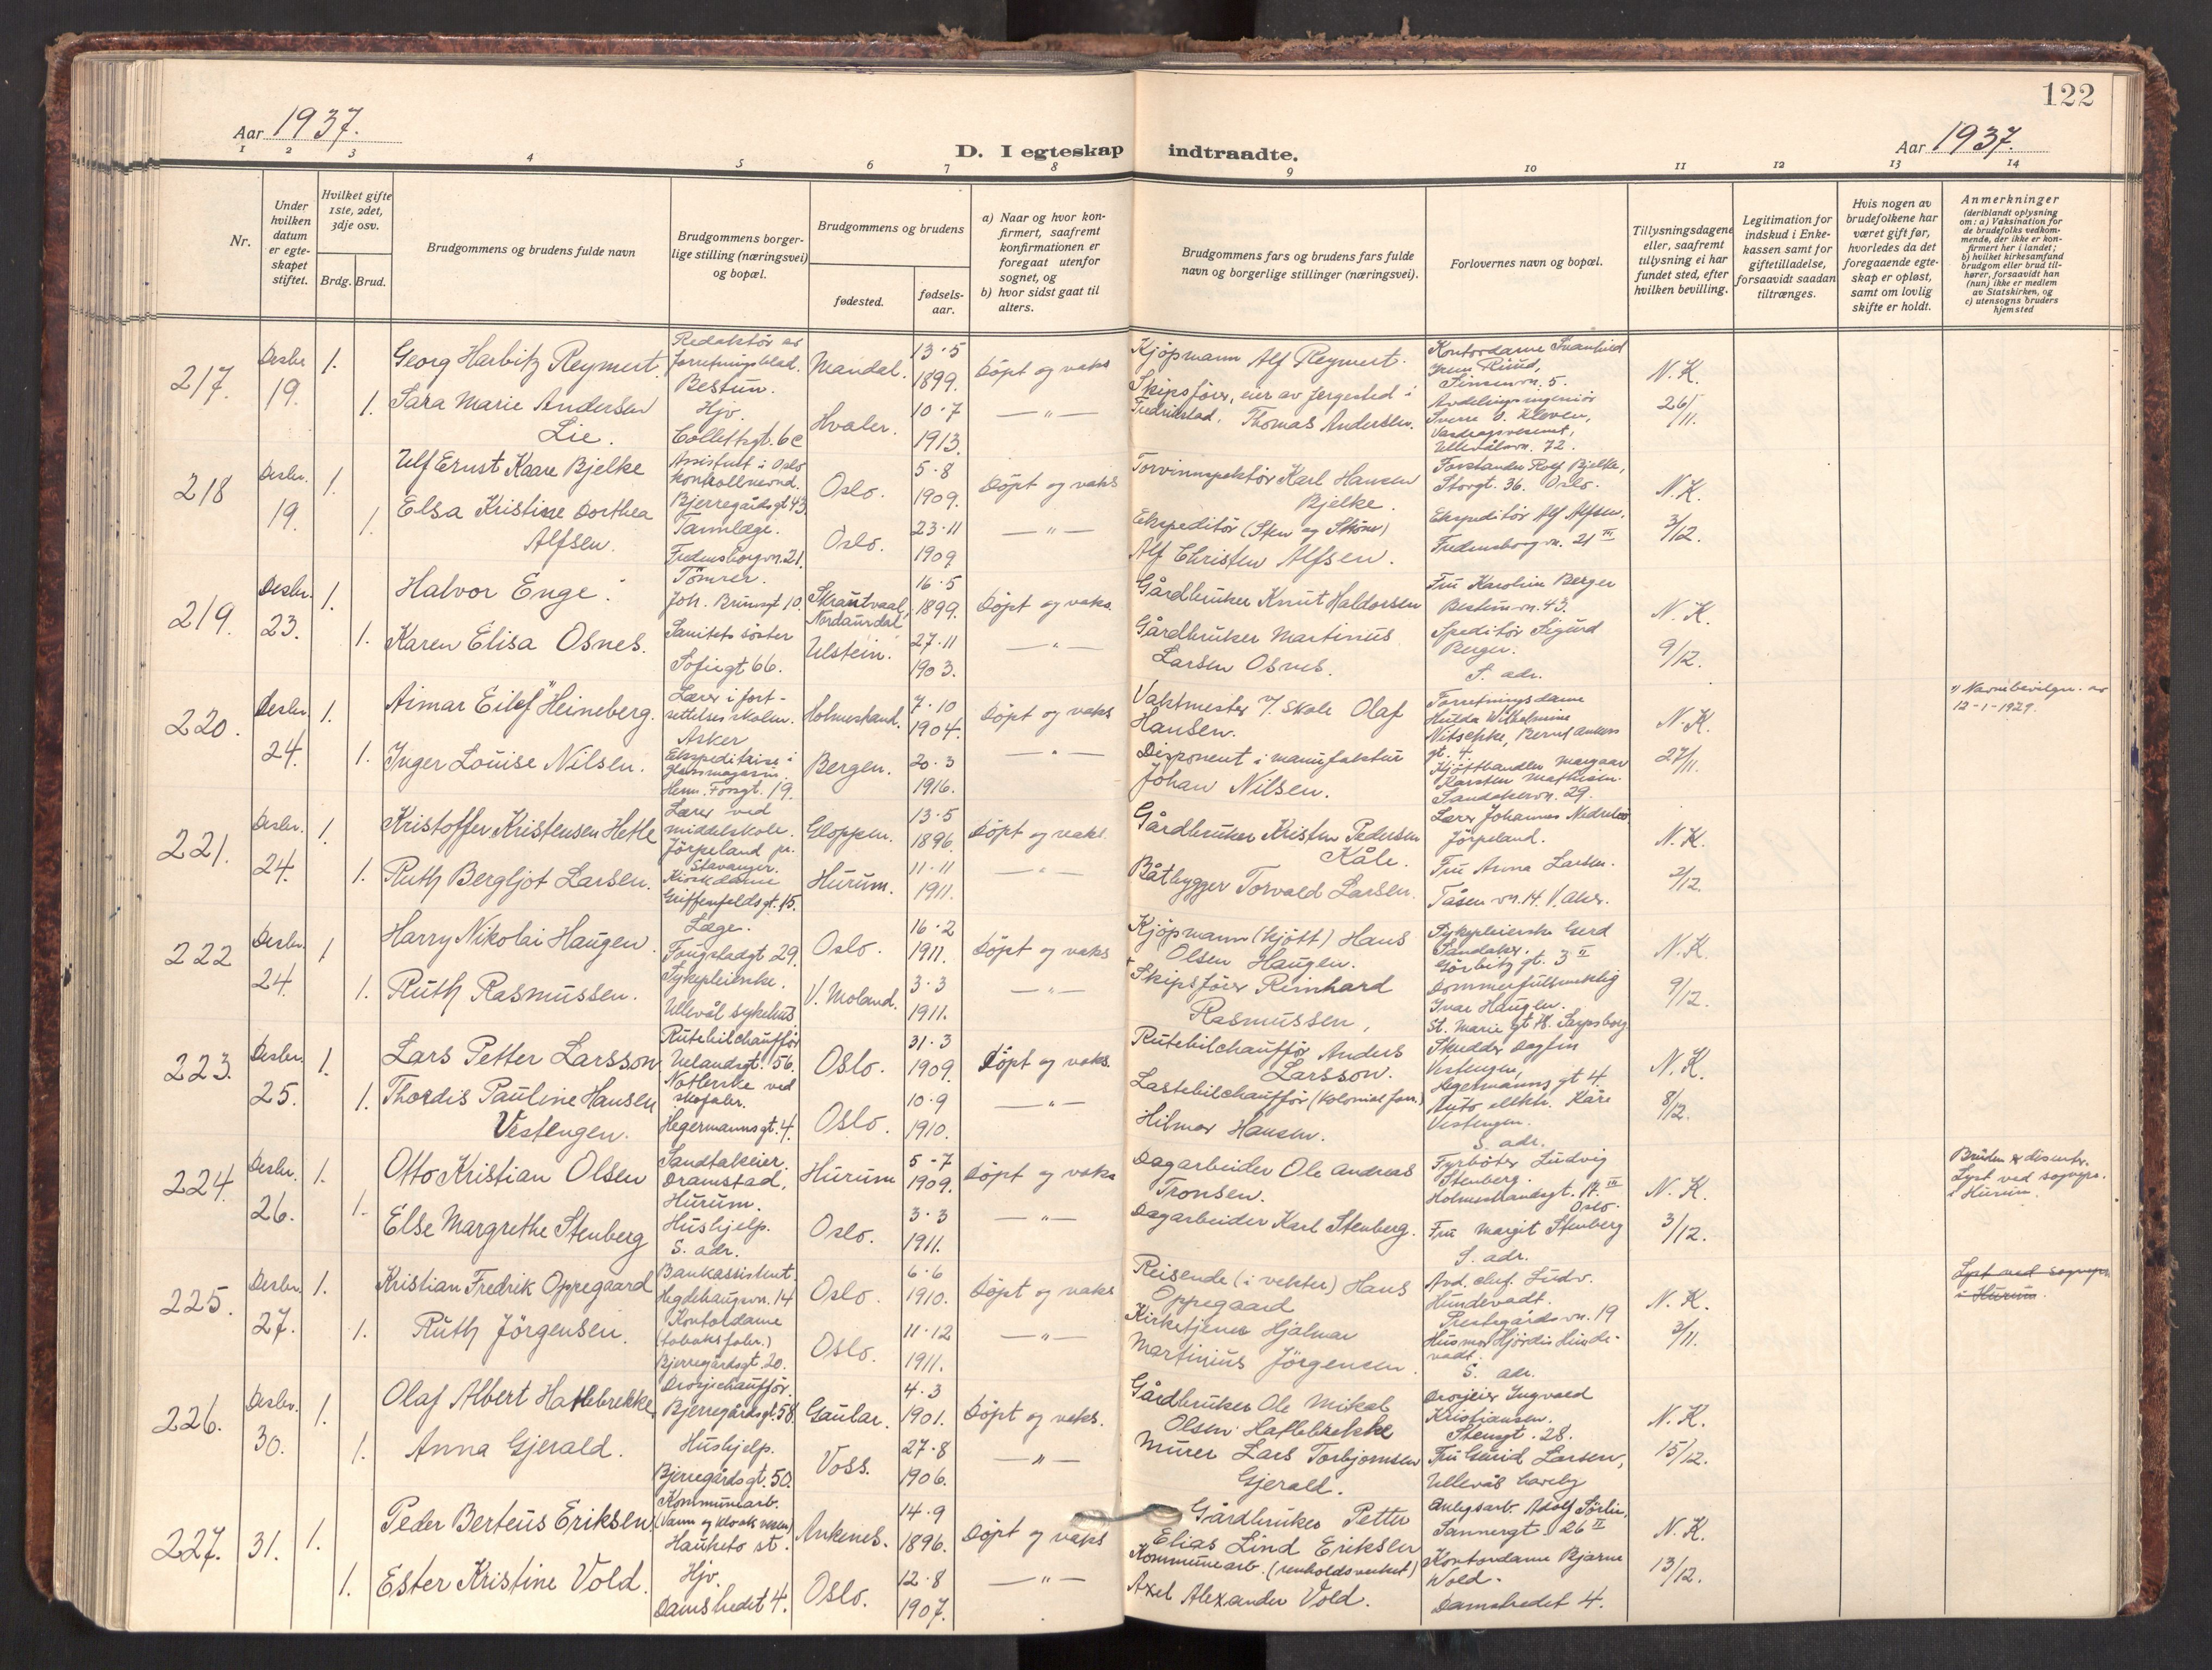 122
Aar 1937.
D. I egteskap indtraadte.
Aar 1937.
1 2 3 4 5 6 7 8 9 10 11 12 13 14
Nr.
Under hvilken datum er egteskapet stiftet.
Hvilket gifte 1ste, 2det, 3dje osv.
Brdg. Brud.
Brudgommens og brudens fulde navn
Brudgommens borgerlige stilling (næringsvei) og bopæl.
Brudgommens og brudens
fødested.
fødselsaar.
a) Naar og hvor konfirmert, saafremt konfirmationen er foregaat utenfor sognet, og
b) hvor sidst gaat til alters.
Brudgommens fars og brudens fars fulde navn og borgerlige stillinger (næringsvei).
Forlovernes navn og bopæl.
Tillysningsdagene eller, saafremt tillysning ei har fundet sted, efter hvilken bevilling.
Legitimation for indskud i Enkekassen samt for giftetilladelse, forsaavidt saadan tiltrænges.
Hvis nogen av brudefolkene har været gift før, hvorledes da det foregaaende egteskap er opløst, samt om lovlig skifte er holdt.
Anmerkninger
(deriblandt oplysning om: a) Vaksination for de brudefolks vedkommende, der ikke er konfirmert her i landet; b) hvilket kirkesamfund brudgom eller brud tilhører, forsaavidt han (hun) ikke er medlem av Statskirken, og c) utensogns bruders hjemsted
217. Desbr. 19. 1. Georg Harbitz Reymert. Redaktör av forretningsblad. Bestun. Mandal. 13·5 1899. Döpt og vaks Kjöpmann Alf Reymert. Kontordame
Sinsenvn. 5. N. K. 26/11.
1. Sara Marie Andersen Lie. Hjv. Collettsgt. 6c Hvaler. 10·7 1913. — " — Skipsförer, eier av fergested i Fredrikstad, Thomas Andersen. Avdelingsingeniör Sverre O. Kleven, Vasdragsvesenet, Ullevålsvn. 72.
218 Desbr. 19. 1. Ulf Ernst Kaare Bjelke Assistent i Oslo kontrollnevnd. Bjerregårdsgt 43 Oslo. 5·8 1909. Döpt og vaks Torvinnspektör Karl Hansen Bjelke. Forstander Rolf Bjelke, Storgt. 36. Oslo. N. K. 3/12.
1. Elsa Kristine Dorthea Alfsen. Tannlæge. Fredensborgvn. 21. Oslo. 23·11 1909 — " — Ekspeditör (Sten og Ström) Alf Christen Alfsen. Ekspeditör Alf Alfsen. Fredensborgvn. 21 III
219. Desbr. 23. 1. Halvor Enge. Tömrer. Joh. Brunsgt 10. Skrautvaal, Nordaurdal 16·5 1899. Döpt og vaks. Gårdbruker Knut Haldorsen Fru Karoline Berger Bestumvn. 43. N. K. 9/12.
1. Karen Elisa Osnes. Sanitetssöster Sofiegt 66. Ulstein. 27·11 1903. — " — Gårdbruker Martinus Larsen Osnes. Speditör Sigurd Berger. S. adr.
220. Desbr. 24. 1. Aimar Eilef " Heineberg. Lærer i fortsettelsesskolen. Asker Holmestrand. 7·10 1904. Döpt og vaks Vaktmester v. skole Olaf Hansen. Forretningsdame Hulda Wilhelmine Nitschke, Bernt Ankers gt. 4. N. K. 27/11. ") Navnebevilgn. av 12-1-1929.
1. Inger Louise Nilsen. Ekspeditrise i glassmagasin. Henr. Ibsgt. 19. Bergen. 20·3 1916. — " — Disponent i manufaktur Johan Nilsen. Kjötthandler
Karsten Mathisen. Sandakervn. 29.
221. Desbr. 24. 1. Kristoffer Kristensen Hetle Lærer ved middelskole. Jörpeland pr. Stavanger. Gloppen. 13·5 1896. Döpt og vaks. Gårdbruker Kristen Pedersen Kåle. Lærer Johannes Nedrebö Jörpeland. N. K. 2/12.
1. Ruth Bergljot Larsen. Kioskdame Griffenfeldsgt. 15. Hurum. 11·11 1911. — " — Båtbygger Torvald Larsen. Fru Anna Larsen. Tåsenvn. 14. V. Aker.
222 Desbr. 24. 1 Harry Nikolai Haugen. Læge. Fougstadgt 29. Oslo. 16·2 1911. Döpt og vaks Kjöpmann (kjött) Hans Olsen Haugen. Sykepleierske Gerd Sandaker. Görbitzgt. 3 II N. K. 9/12.
1. Ruth Rasmussen. Sykepleierske. Ullevål sykehus V. Moland. 3·3 1911. — " — Skipsförer Reinhard Rasmussen, Dommerfullmektig Ivar Haugen. St. Marie gt Sarpsborg
223. Desbr. 25. 1. Lars Petter Larsson. Rutebilchauffør Uelandsgt. 56. Oslo. 31·3 1909. Döpt og vaks. Rutebilchauffør Anders Larsson. Dagfin Vestengen, Hegermannsgt 4. N. K. 8/12.
1. Thordis Pauline Hansen Vestengen. Nåtlerske ved skofabr. Hegermannsgt. 4. Oslo. 10·9 1910. — " — Lastebilchauffør (kolonial forr.) Hilmar Hansen. Auto elektr. Kåre Vestengen. S. adr.
224. Desbr. 26. 1. Otto Kristian Olsen Sandtakeier. Dramstad, Hurum. Hurum 5-7 1909. Döpt og vaks Dagarbeider Ole Andreas Tronsen. Fyrböter Ludvig Stenberg. Holmestrandsgt. 17. III Oslo. N. K. 3/12. Bruden er dissenter. Lyst ved sogneps. i Hurum.
1. Else Margrethe Stenberg Hushjelp. S. adr. Oslo. 3·3 1911. — " — Dagarbeider Karl Stenberg. Fru Margit Stenberg S. adr.
225. Desbr. 27. 1. Kristian Fredrik Oppegaard Bankassistent. Hegdehaugsvn. 14 Oslo. 6·6 1910. Döpt og vaks Reisende (i vekter) Hans Oppegaard Avd. chef. Ludv. Hundevadt. Prestegårdsvn. 19 N. K. 3/11. Lyst ved sogneps. i Hurum.
1. Ruth Jörgensen. Kontoldame (tobaksfabr.) Bjerregårdsgt. 20. Oslo. 11·12 1911. — " — Kirketjener Hjalmar Martinius Jörgensen. Husmor Hjördis Hundevadt. S. adr.
226. Desbr. 30. 1. Olaf Albert Hatlebrekke Drosjechauffør. Bjerregårdsgt. 58. Gaular. 4·3 1901. Döpt og vaks. Gårdbruker Ole Mikal Olsen Hatlebrekke Drosjeeier Ingvald Kristiansen. Stensgt. 28. N. K. 15/12.
1. Anna Gjerald. Hushjelp. Bjerregårdsgt. 50. Voss. 27·8 1906. — " — Murer Lars Torbjornsen Gjerald. Fru Gurid Larsen, Ullevål haveby
227. 31. 1. Peder Berteus Eriksen Kommunearb. (Vann og kloakvesen) Hauketo st. Ankenes. 14·9 1896. Döpt og vaks Gårdbruker Petter Elias Lind Eriksen Anlegsarb. Adolf Sörlie, Sannergt. 26 II N. K. 13/12.
1. Ester Kristine Vold. Hjv. Damstredet 4. Oslo. 12·8 1907. — " — Kommunearb. (renholdsverket) Axel Alexander Vold. Kontordame Bjarne Wold. Damstredet 4.